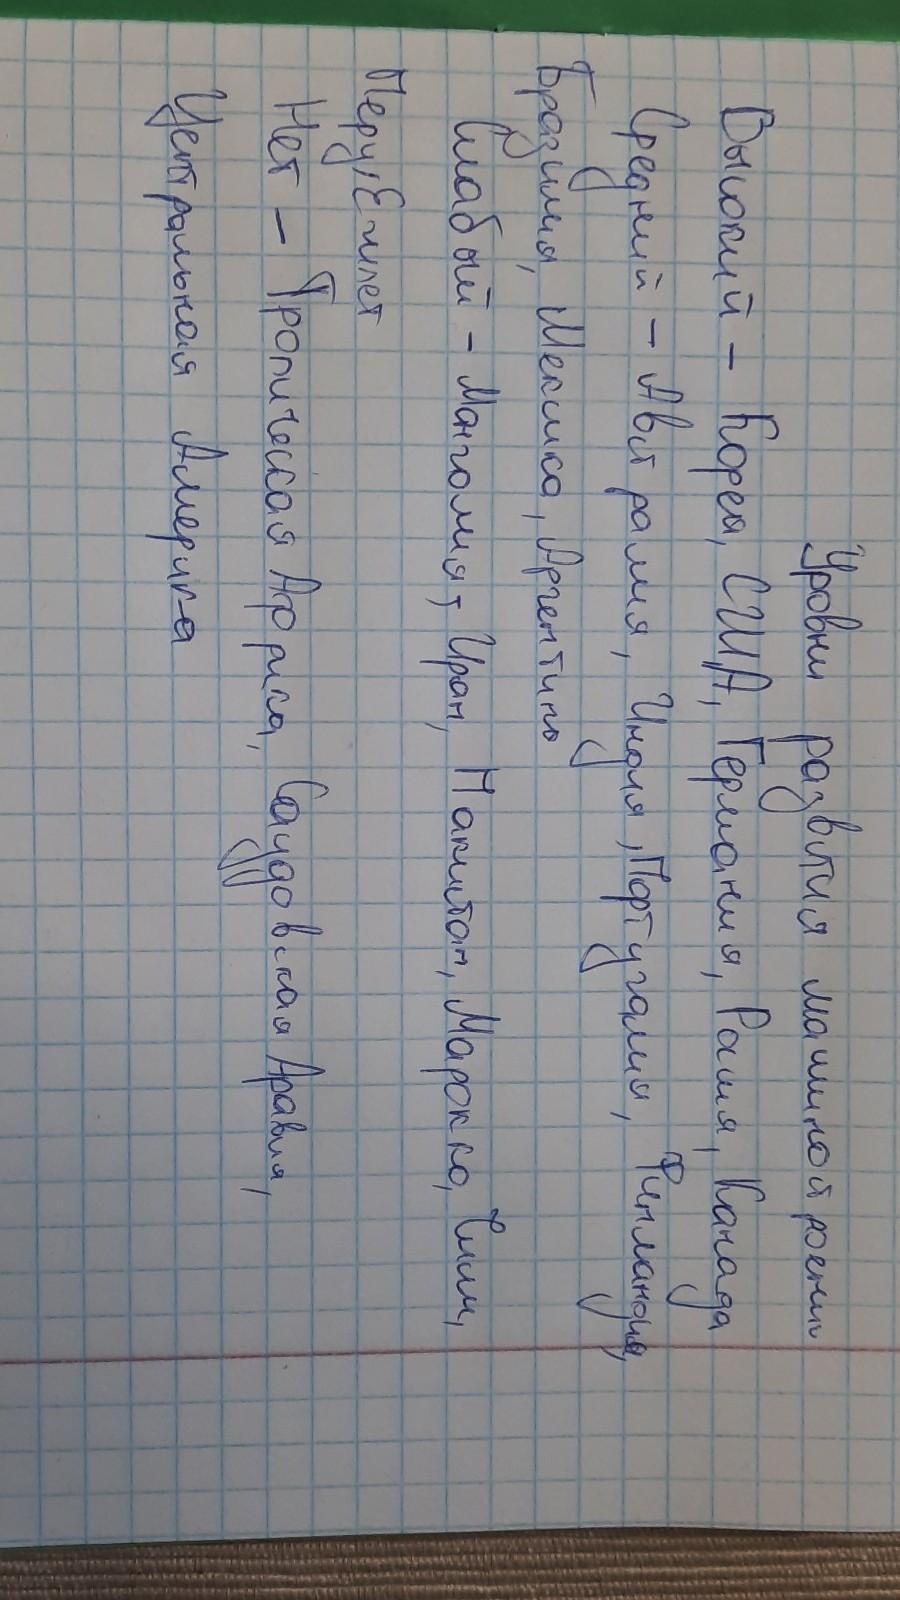 Уровни развития машиностроении
Высокий - Корея, США, Германия, Россия, Канада
Средний - Австралия, Индия, Португалия, Финляндия,
Бразилия, Мексика, Аргентина
Слабый - Манголия, Иран, Пакистан, Марокко, Чили,
Перу, Египет
Нет - Тропическая Африка, Саудовская Аравия,
Центральная Америка